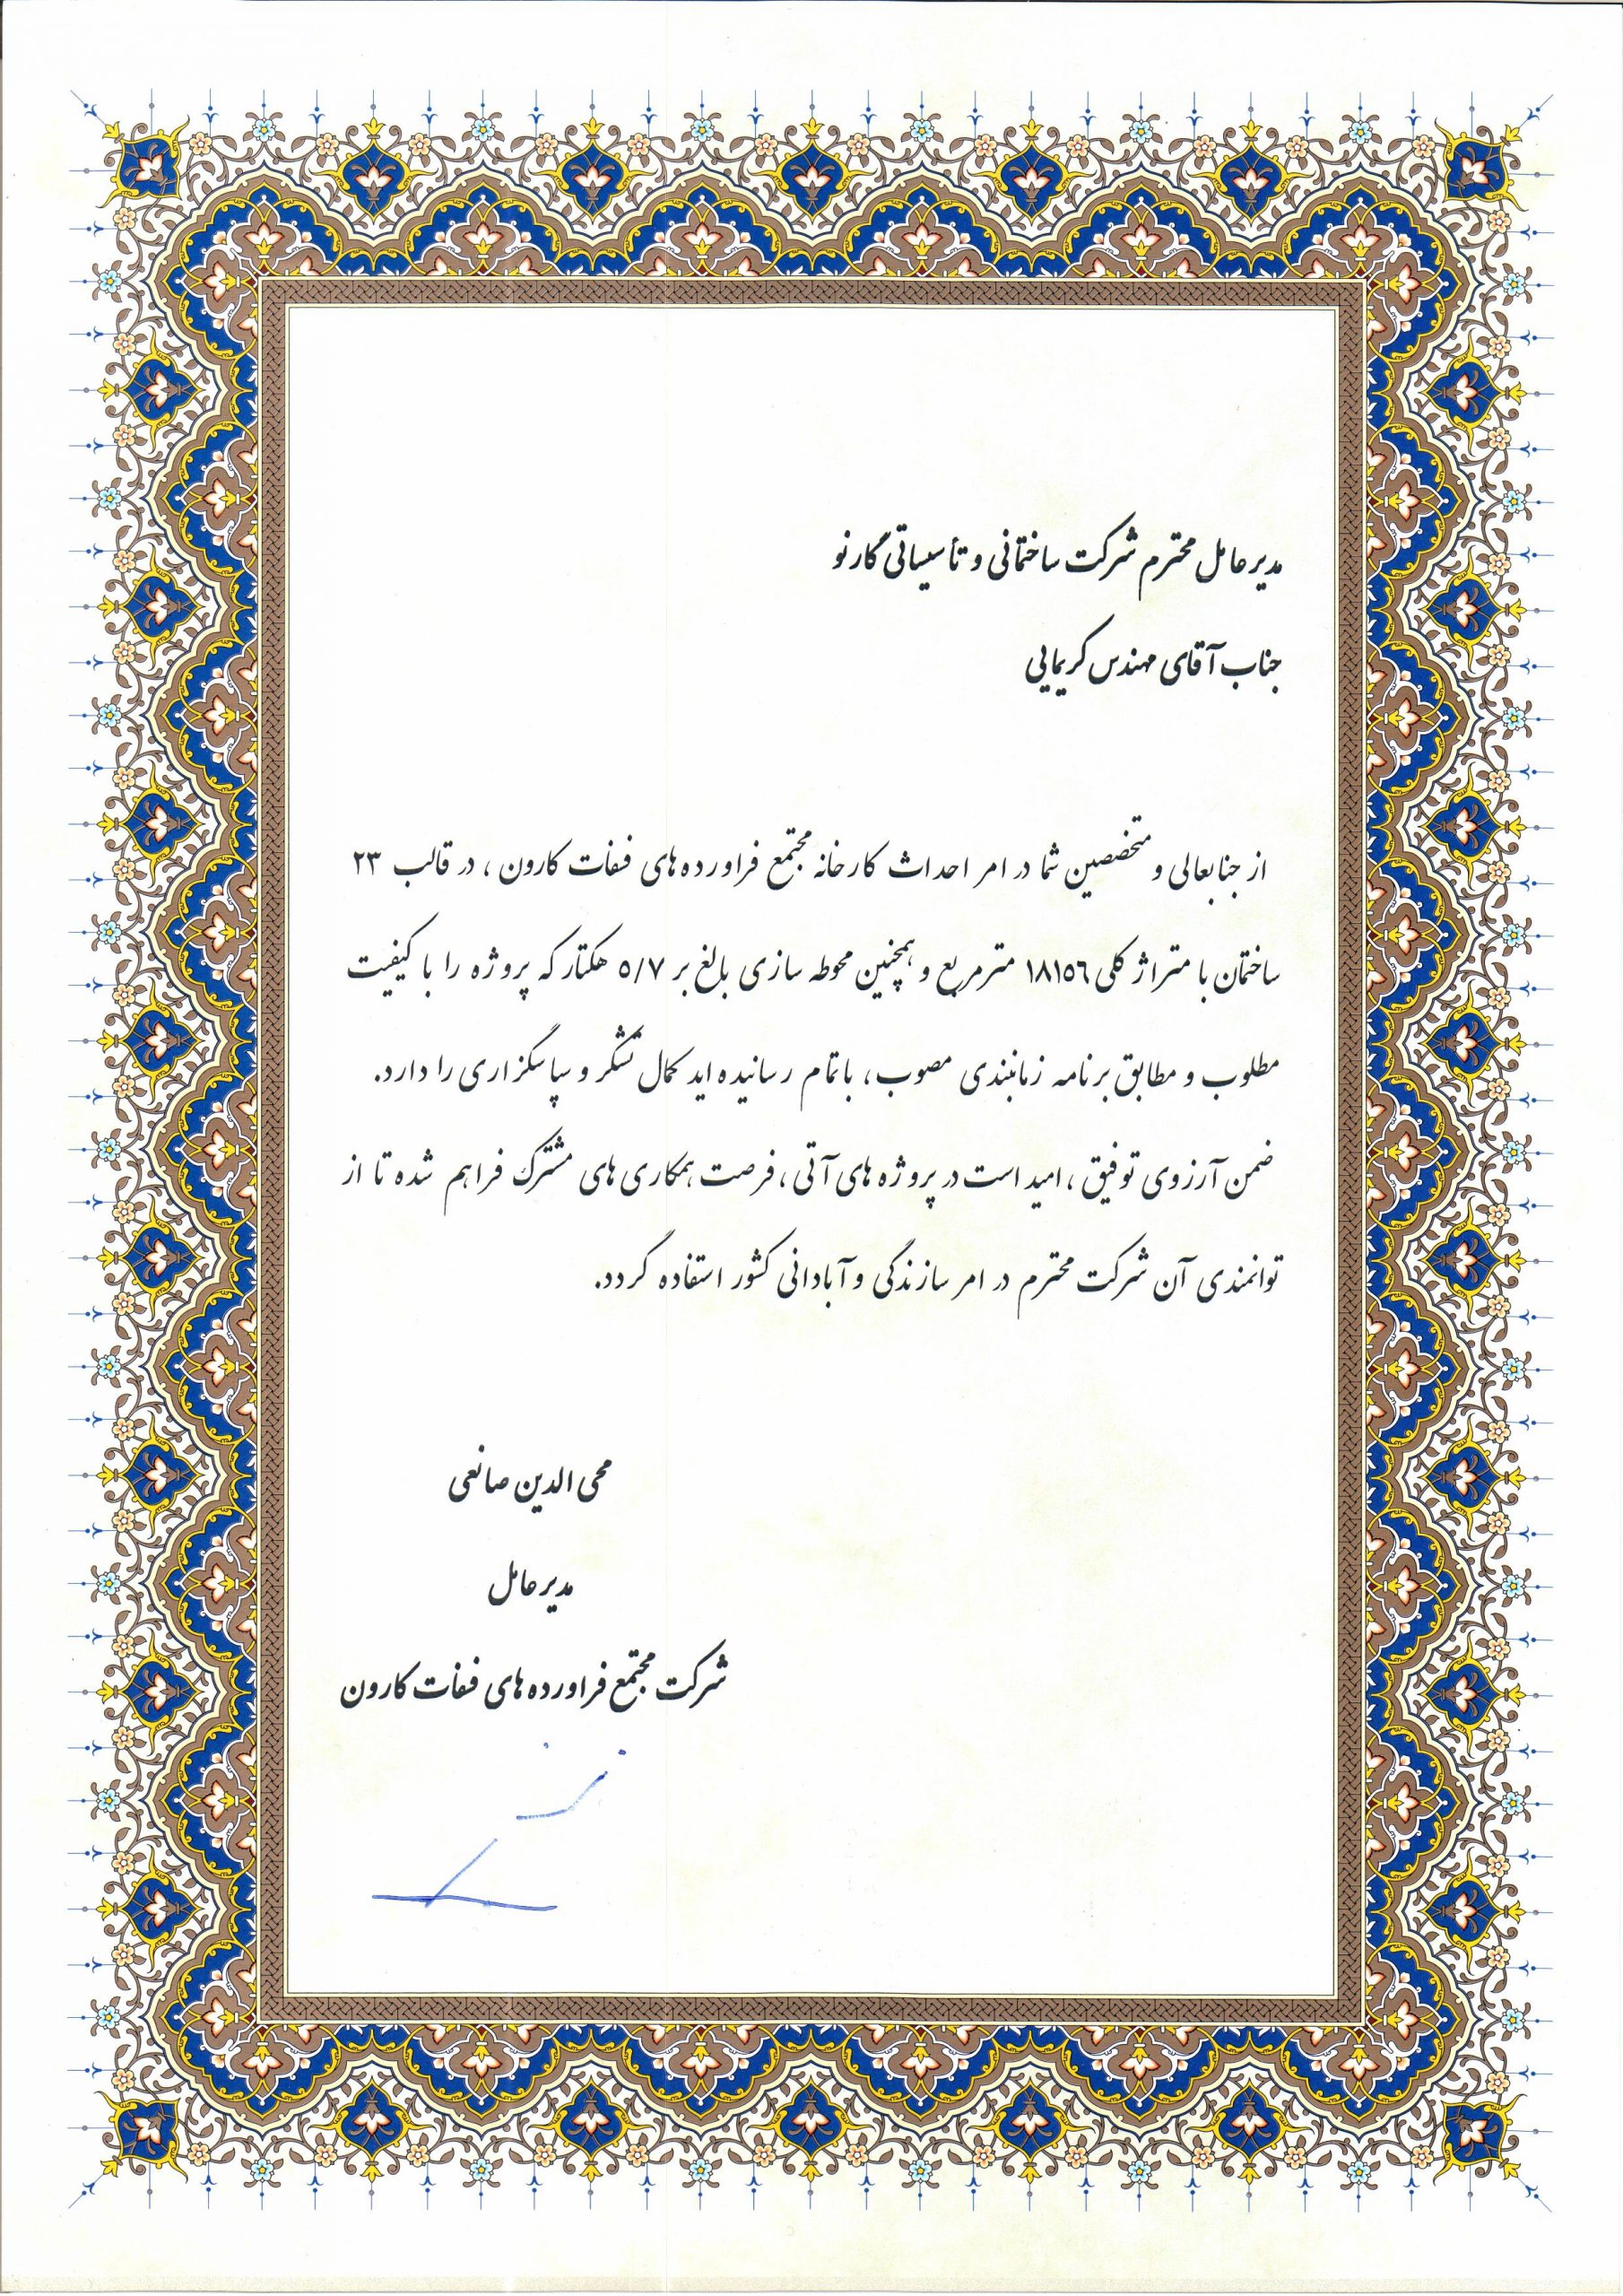 مدیرعامل محترم شرکت ساختمانی و تأسیساتی گارنو
جناب آقای مهندس کریمایی
از جنابعالی و متخصصین شما در امر احداث کارخانه مجتمع فراورده‌های فسفات کارون ، در قالب ۲۳
ساختمان با متراژ کلی ۱۸۱۵۶ مترمربع و همچنین محوطه سازی بالغ بر ۵/۷ هکتار که پروژه را با کیفیت
مطلوب و مطابق برنامه زمانبندی مصوب، باتمام رسانیده اید کمال تشکر و سپاسگزاری را دارد.
ضمن آرزوی توفیق ، امید است در پروژه های آتی ، فرصت همکاری های مشترک فراهم شده تا از
توانمندی آن شرکت محترم در امر سازندگی و آبادانی کشور استفاده گردد.
محی الدین صانعی
مدیرعامل
شرکت مجتمع فراورده های فسفات کارون